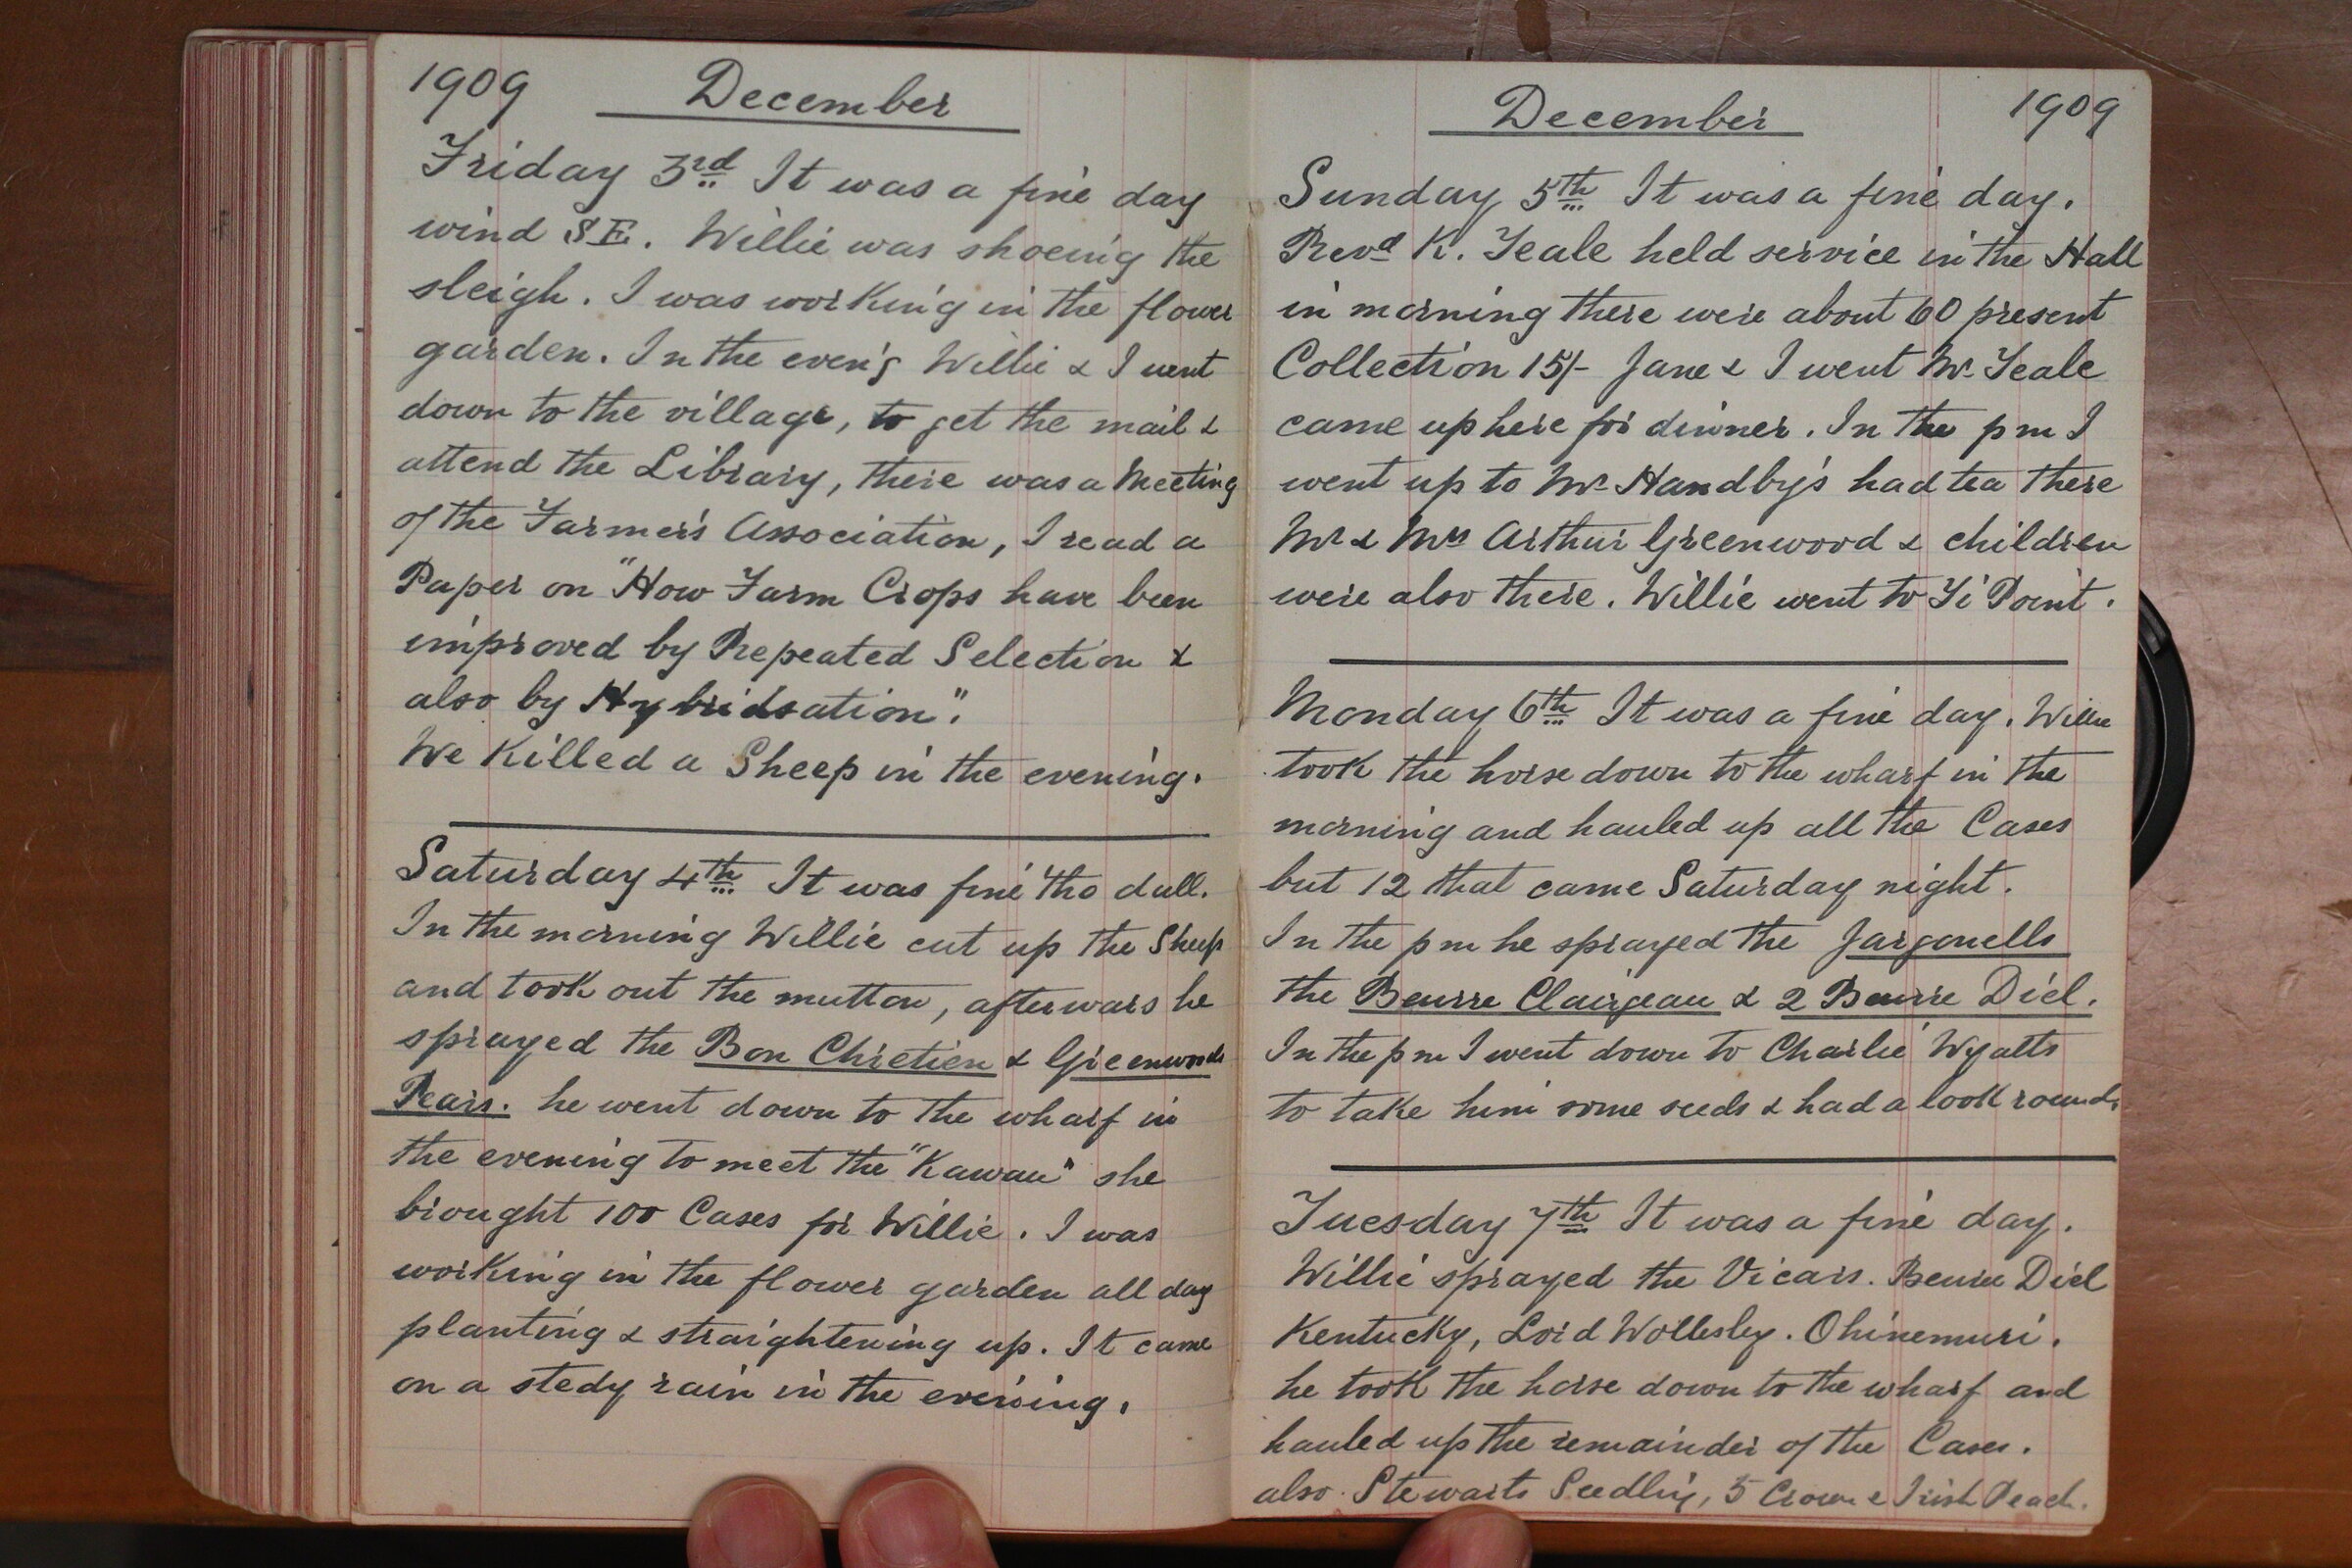 1909 December
Friday 3rd It was a fine day
wind S E. Willie was shoeing the
sleigh. I was working in the flower
garden. In the even'g Willie & I went
down to the village, to get the mail &
attend the Library, there was a Meeting
of the Farmer's Association, I read a
Paper on "How Farm Crops have been
improved by Repeated Selection &
also by Hybridsation".
We Killed a Sheep in the evening.
Saturday 4th It was fine tho dull.
In the morning Willie cut up the Sheep
and took out the mutton, afterwars he
sprayed the Bon Chretien & Greenwoods
Pears. he went down to the wharf in
the evening to meet the "Kawau" she
brought 100 Cases for Willie. I was
working in the flower garden all day
planting & straightening up. It came
on a stedy rain in the evening.
December 1909
Sunday 5th It was a fine day.
Revd K. Teale held service in the Hall
in morning there were about 60 present
Collection 15/- Jane & I went Mr Teale
came up here for dinner. In the pm I
went up to Mr Handby's had tea there
Mr & Mrs Arthur Greenwood & children
were also there. Willie went to Ti Point.
Monday 6th It was a fine day. Willie
took the horse down to the wharf in the
morning and hauled up all the Cases
but 12 that came Saturday night.
In the pm he sprayed the Jargonells
the Beurre Clairgeau & 2 Beurre Diel.
In the pm I went down to Charlie Wyatts
to take him some seeds & had a look round.
Tuesday 7th It was a fine day.
Willie sprayed the Vicars. Beurre Diel
Kentucky, Lord Wollesley. Ohinemuri.
he took the horse down to the wharf and
hauled up the remainder of the Cases.
also Stewarts Seedling, 5 Crown & Irish Peach.